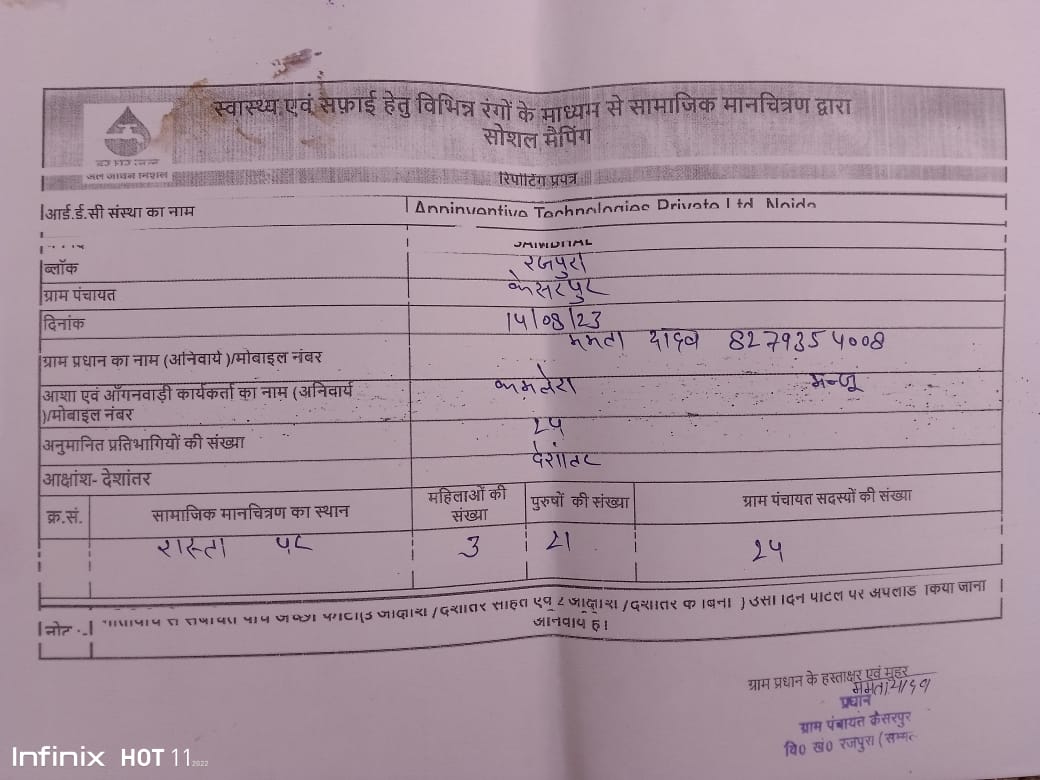 स्वास्थ्य एवं सफ़ाई हेतु विभिन्न रंगों के माध्यम से सामाजिक मानचित्रण द्वारा
सोशल मैपिंग
जल जीवन मिशन
रिपोर्टिंग प्रपत्र
आई.ई.सी संस्था का नाम Anninventive Technologies Private Ltd Noida
SAMBHAL
ब्लॉक रजपुरा
ग्राम पंचायत केसरपुर
दिनांक 14/08/23
ग्राम प्रधान का नाम (अनिवार्य )/मोबाइल नंबर ममता यादव 8279354008
आशा एवं आँगनवाड़ी कार्यकर्ता का नाम (अनिवार्य मन्जू
)/मोबाइल नंबर
अनुमानित प्रतिभागियों की संख्या 24
आक्षांश- देशांतर देशांतर
क्र.सं. सामाजिक मानचित्रण का स्थान महिलाओं की संख्या पुरुषों की संख्या ग्राम पंचायत सदस्यों की संख्या
रास्ता पर 3 21 24
नोट :- आक्षांश /देशांतर सहित एवं 2 आक्षांश /देशांतर के बिना ) उसी दिन पोर्टल पर अपलोड किया जाना
अनिवार्य है।
ग्राम प्रधान के हस्ताक्षर एवं मुहर
ममता यादव
प्रधान
ग्राम पंचायत कैसरपुर
वि0 खं0 रजपुरा (सम्भल
Infinix HOT 11 2022